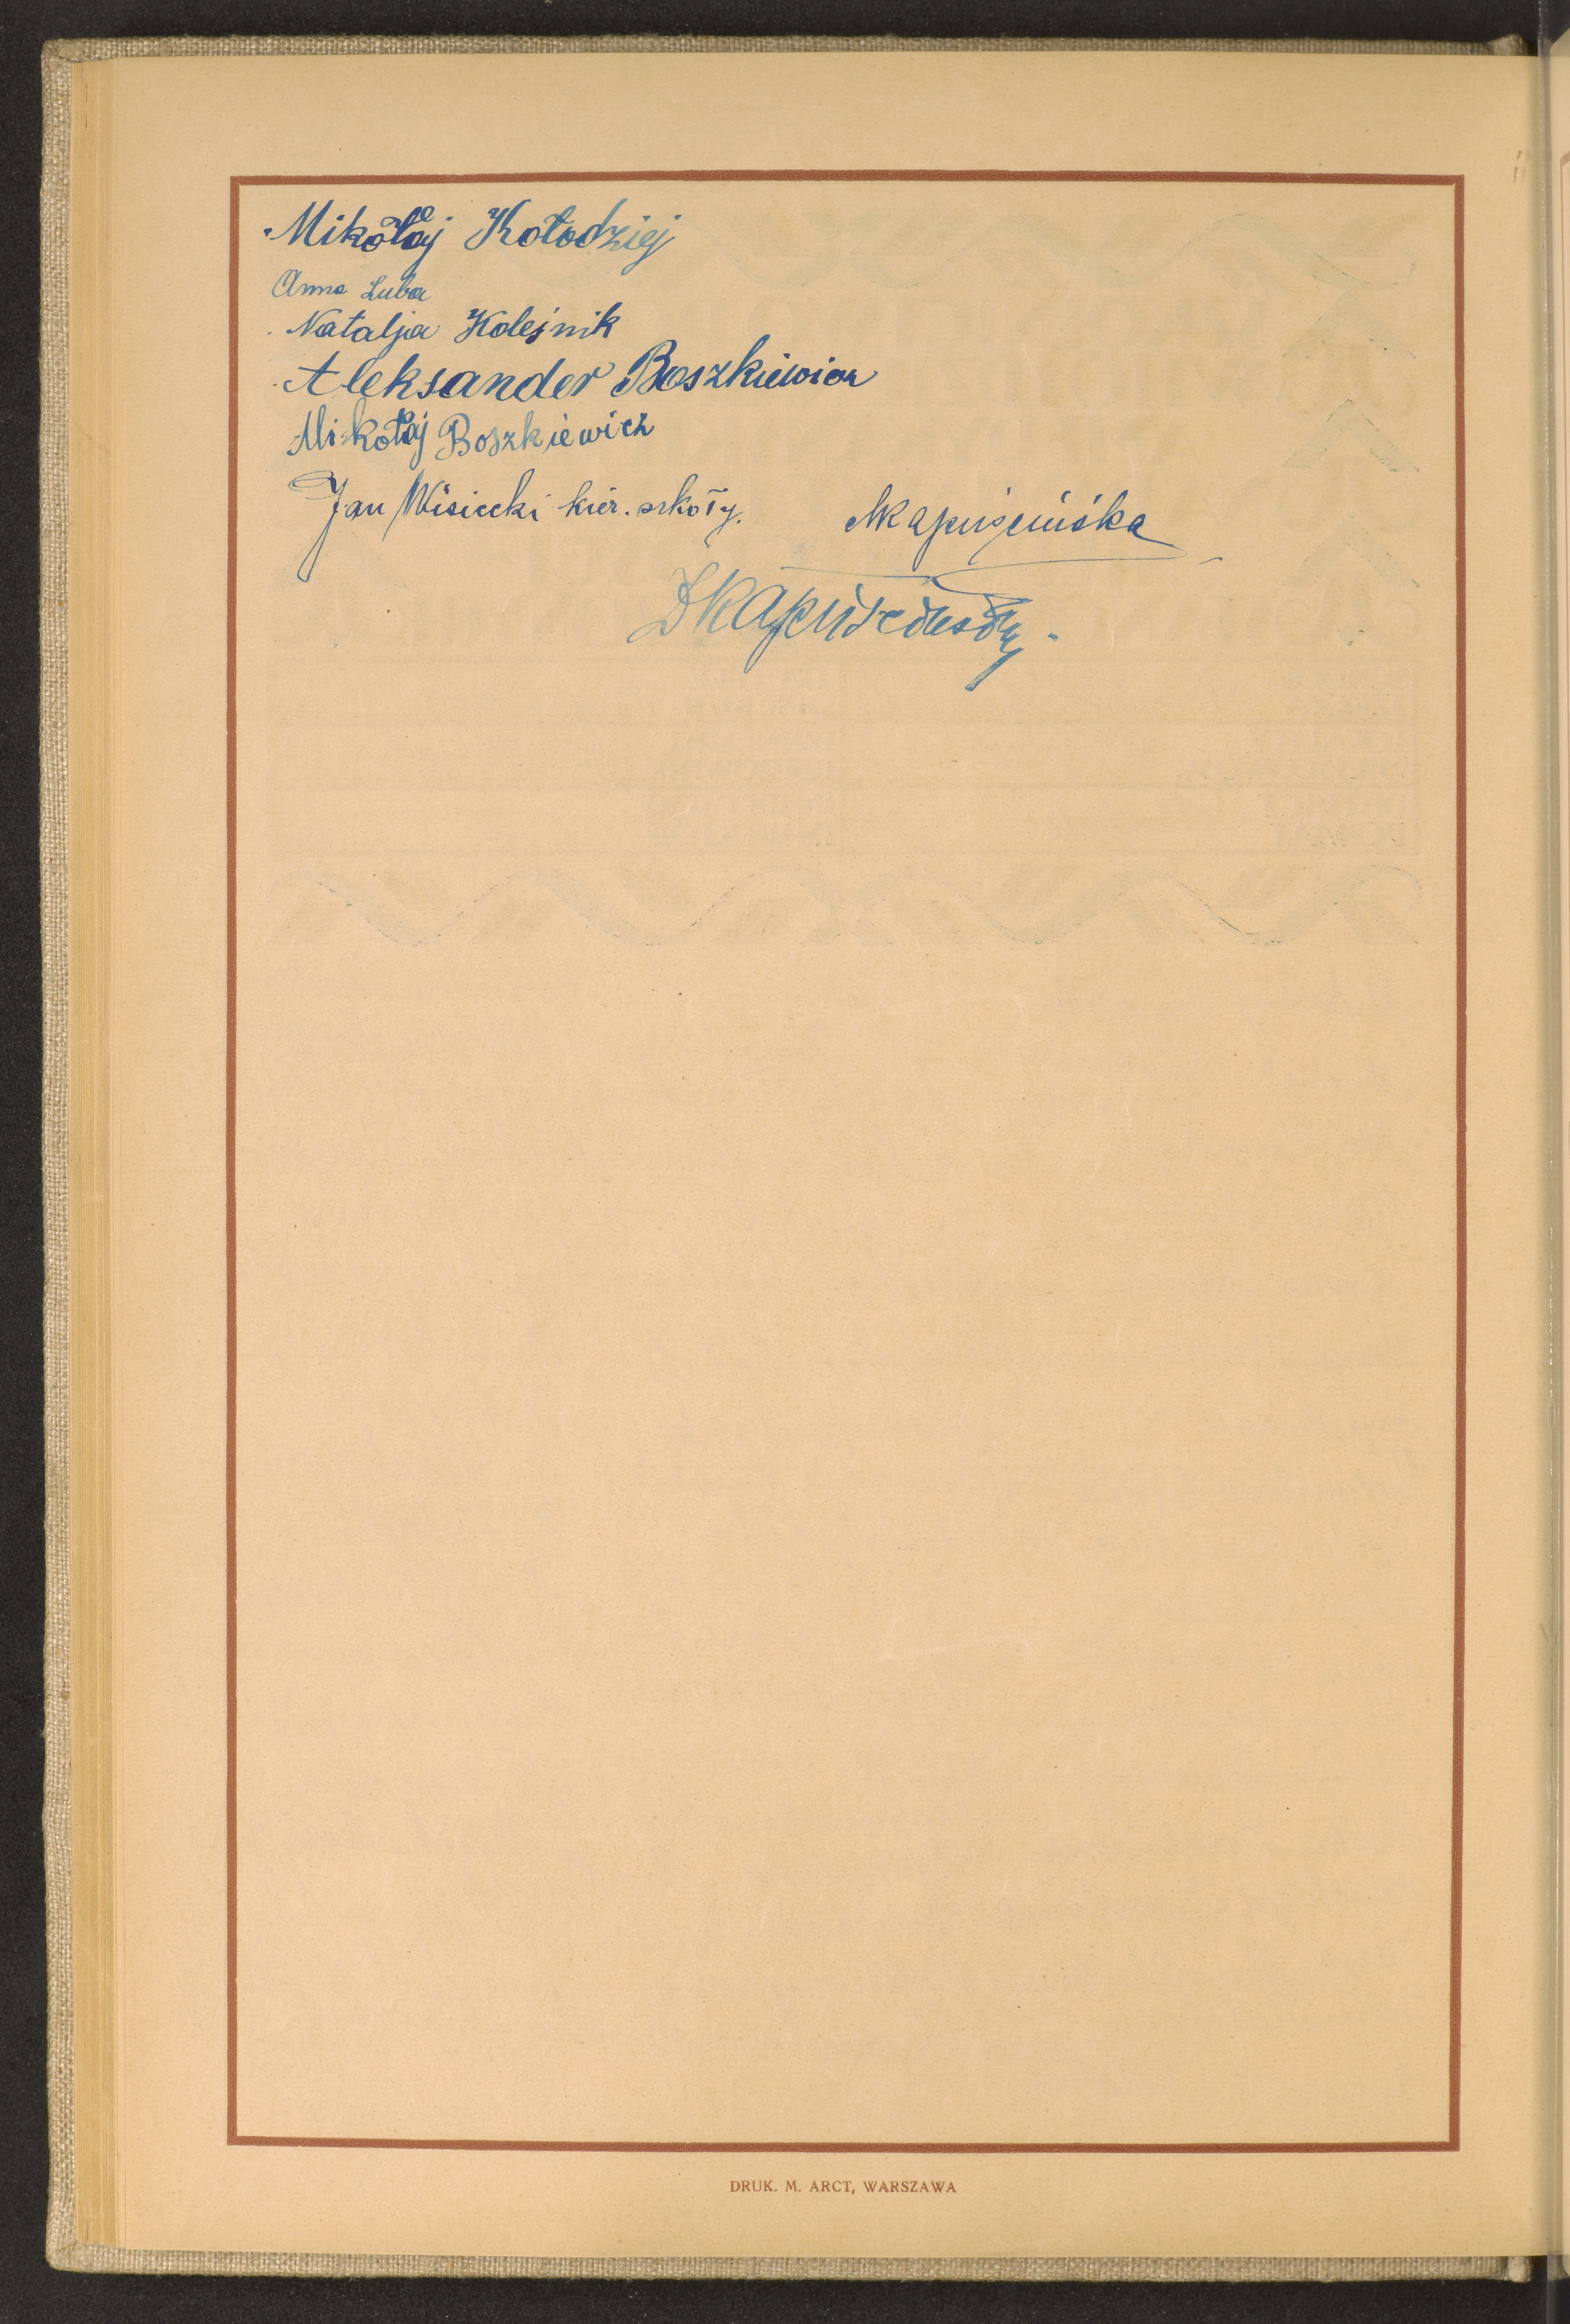 Mikołaj Kołodziej
Anna Luba
Natalja Koleśnik
Aleksander Boszkiewicz
Mikołaj Boszkiewicz
Jan Wisiecki kier. szkoły.
DRUK. M. ARCT, WARSZAWA